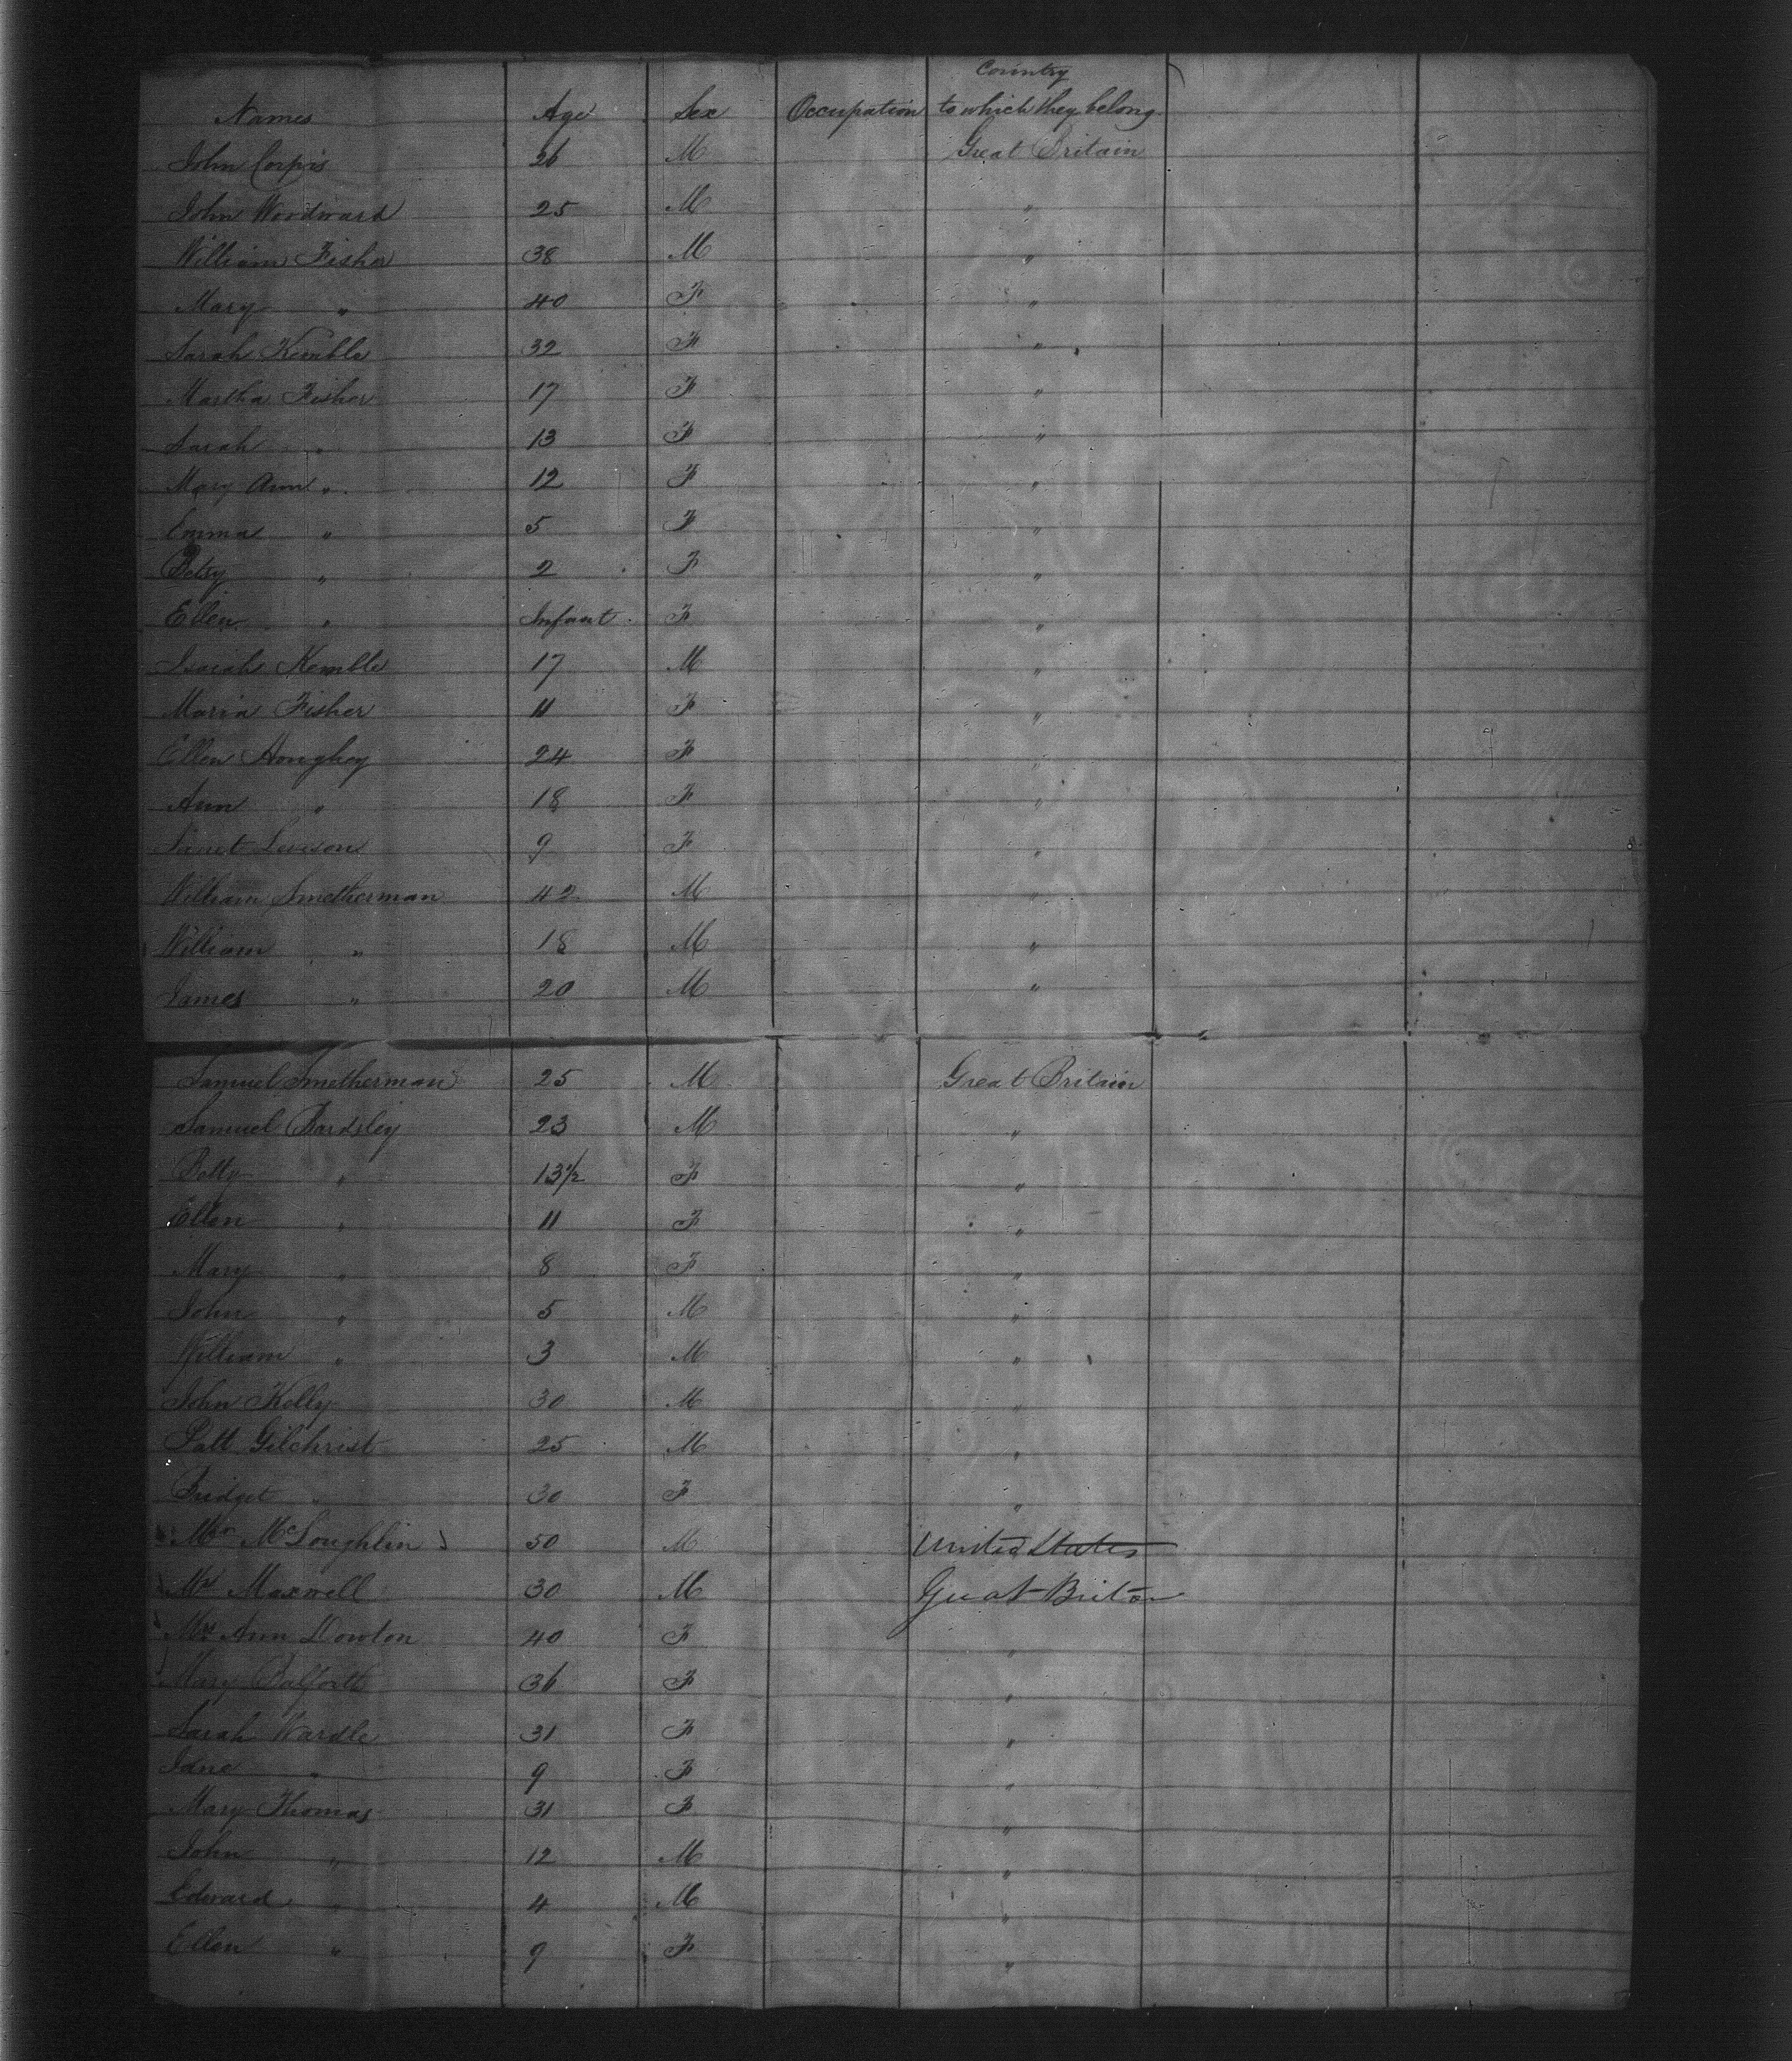 Names Age Sex Occupation Country to which they belong
John Corpis 26 M Great Britain
John Woodward 25 M "
William Fisher 38 M "
Mary " 40 F "
Sarah Kemble 32 F "
Martha Fisher 17 F "
Sarah " 13 F "
Mary Ann " 12 F "
Emma " 5 F "
Betsy " 2 F "
Ellen " Infant F "
Isaiah Kemble 17 M "
Maria Fisher 11 F "
Ellen 24 F "
Ann " 18 F "
9 F "
William Smetherman 42 M "
William " 18 M "
James " 20 M "
Samuel Smetherman 25 M Great Britain
Samuel Bardsley 23 M "
Betty " 13 1/2 F "
Ellen " 11 F "
Mary " 8 F "
John " 5 M "
William " 3 M "
John Kelly 30 M "
Patt Gilchrist 25 M "
Bridget " 30 F "
Mr McLoughlin 50 M United States
Mr Maxwell 30 M Great Britan
Mrs Ann Dowton 40 F "
Mary 36 F "
Sarah Wardle 31 F "
Jane " 9 F "
Mary Thomas 31 F "
John " 12 M "
Edward " 4 M "
Ellen " 9 F "